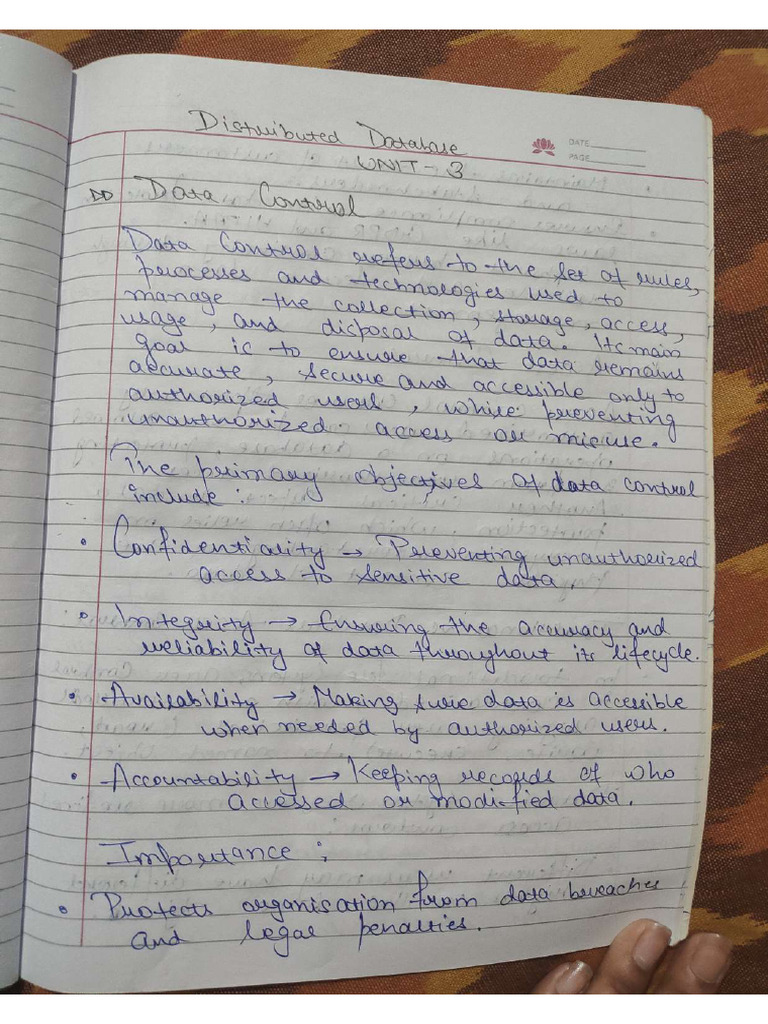 Distributed Database
UNIT-3
DATE
PAGE
Data Control
Data Control refers to the set of rules,
processes and technologies used to
manage the collection, storage, access,
usage, and disposal of data. Its main
goal is to ensure that data remains
accurate, secure and accessible only to
authorized users, while preventing
unauthorized access or misuse.
The primary objectives of data control
include :
• Confidentiality → Preventing unauthorized
access to sensitive data.
• Integrity → Ensuring the accuracy and
reliability of data throughout its lifecycle.
• Availability → Making sure data is accessible
when needed by authorized users.
• Accountability → Keeping records of who
accessed or modified data.
Importance :
• Protects organisation from data breaches
and legal penalties.